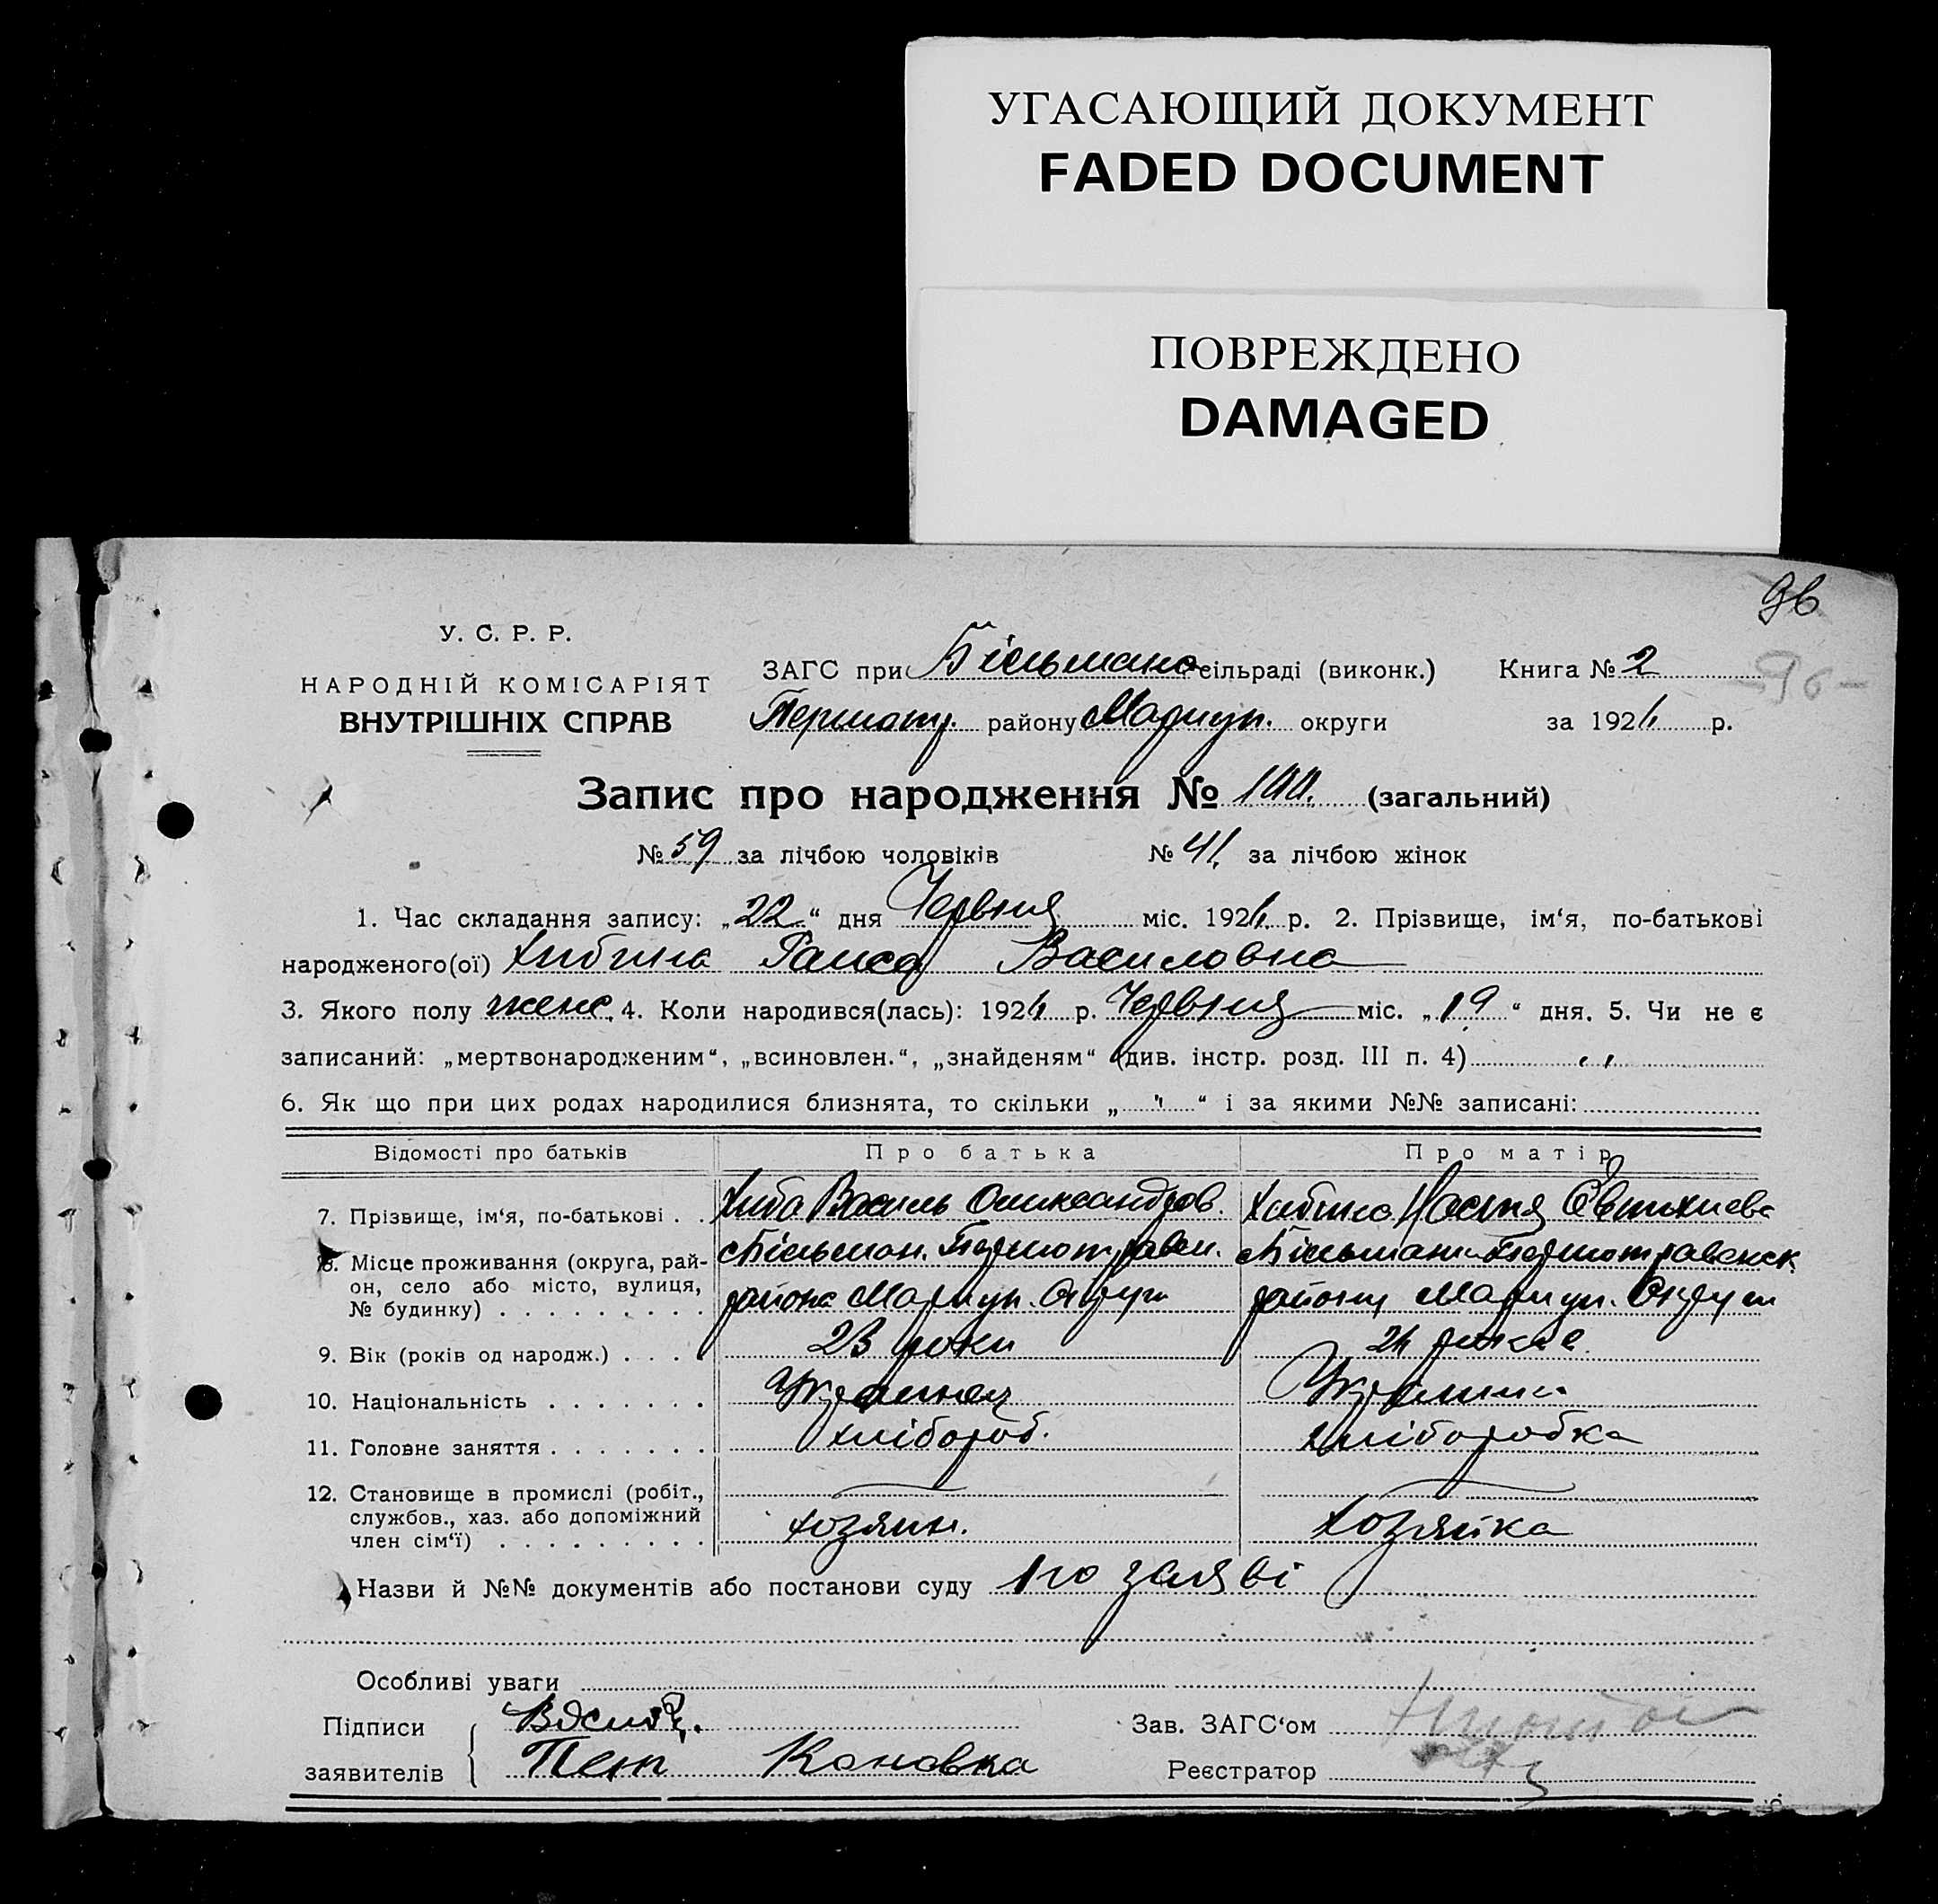 УГАСАЮЩИЙ ДОКУМЕНТ
FADED DOCUMENT
ПОВРЕЖДЕНО
DAMAGED
96
У. С. Р. Р.
НАРОДНІЙ КОМІСАРІЯТ
ВНУТРІШНІХ СПРАВ
ЗАГС при Більмано сільраді (виконк.) Книга № 2
- 96 -
Першотр. району Маріуп. округи за 192 р.
Запис про народження № 100. (загальний)
№ 59 за лічбою чоловіків № 41. за лічбою жінок
1. Час складання запису: „22“ дня Червня міс. 192 р. 2. Прізвище, ім‘я, по-батькові
народженого(ої) Хибина Раиса Василовна
3. Якого полу женс. 4. Коли народився(лась): 192 р. Червня міс. „19“ дня. 5. Чи не є
записаний: „мертвонародженим“, „всиновлен.“, „знайденям“ (див. інстр. розд. III п. 4)
6. Як що при цих родах народилися близнята, то скільки „ " “ і за якими №№ записані:
Відомості про батьків Про батька Про матір
7. Прізвище, ім‘я, по-батькові . . Хиба Василь Олександров. Хибина Настя Євтихиева
8. Місце проживання (округа, рай-он, село або місто, вулиця, № будинку) . . . . . . . . . Більман. Першотравен. района Маріуп. Округи Більманки Першотравенск. району Маріуп. Округи
9. Вік (років од народж.) . . . . 23 роки 24 роков
10. Національність . . . . . . . Украинец Украинка
11. Головне заняття . . . . . . . хлібороб. хліборобка
12. Становище в промислі (робіт., службов., хаз. або допоміжний член сім‘ї) . . . . . . . . . хозяин. хозяйка
Назви й №№ документів або постанови суду по заяві
Особливі уваги
Підписи Зав. ЗАГС‘ом
заявителів Пет Кановка Реєстратор